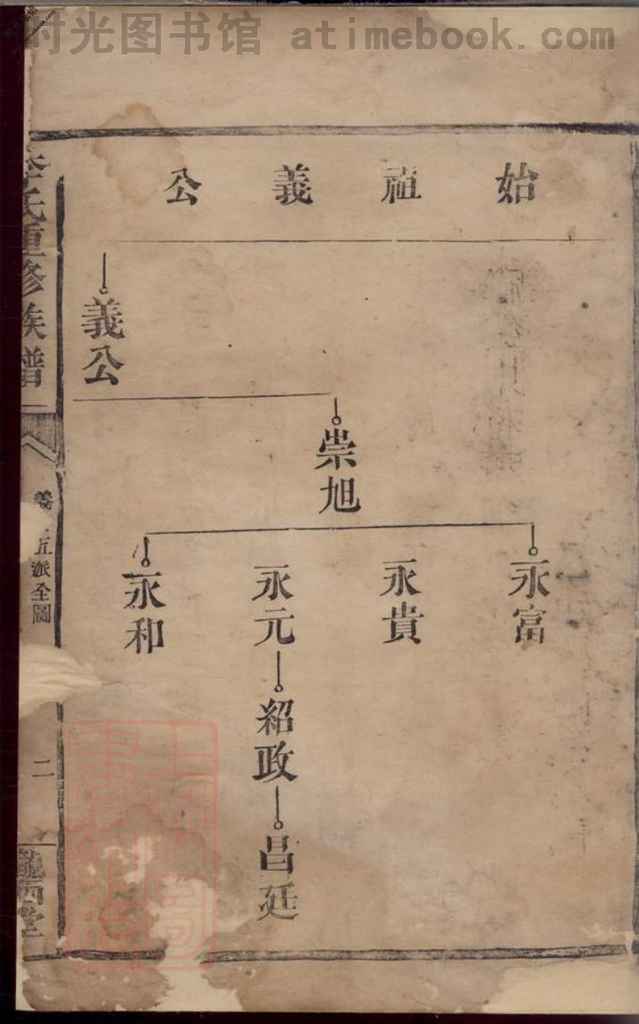 时光图书馆 atimebook.com
始祖義公
義公
崇旭
永富
永貴
永元
紹政
昌廷
永和
李氏重修族譜
義 五派全圖
二
隴西堂